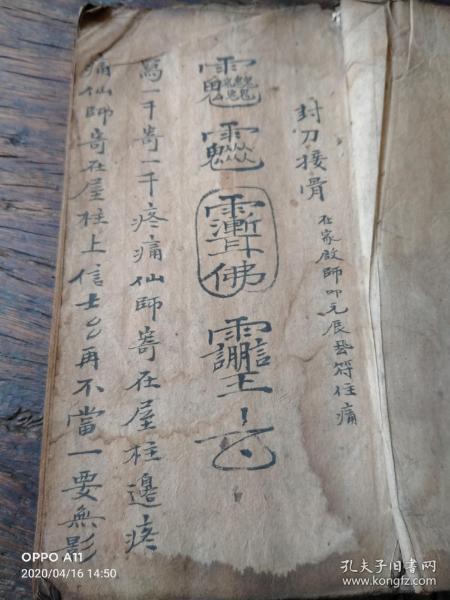 封刀接骨
在家啟師叩元辰發符住痛
佛
萬一千寄一千疼痛仙師寄在屋柱邊疼
痛仙師寄在屋柱上信士厶再不當一要無影
OPPO A11
2020/04/16 14:50
孔夫子旧书网
kongfz.com